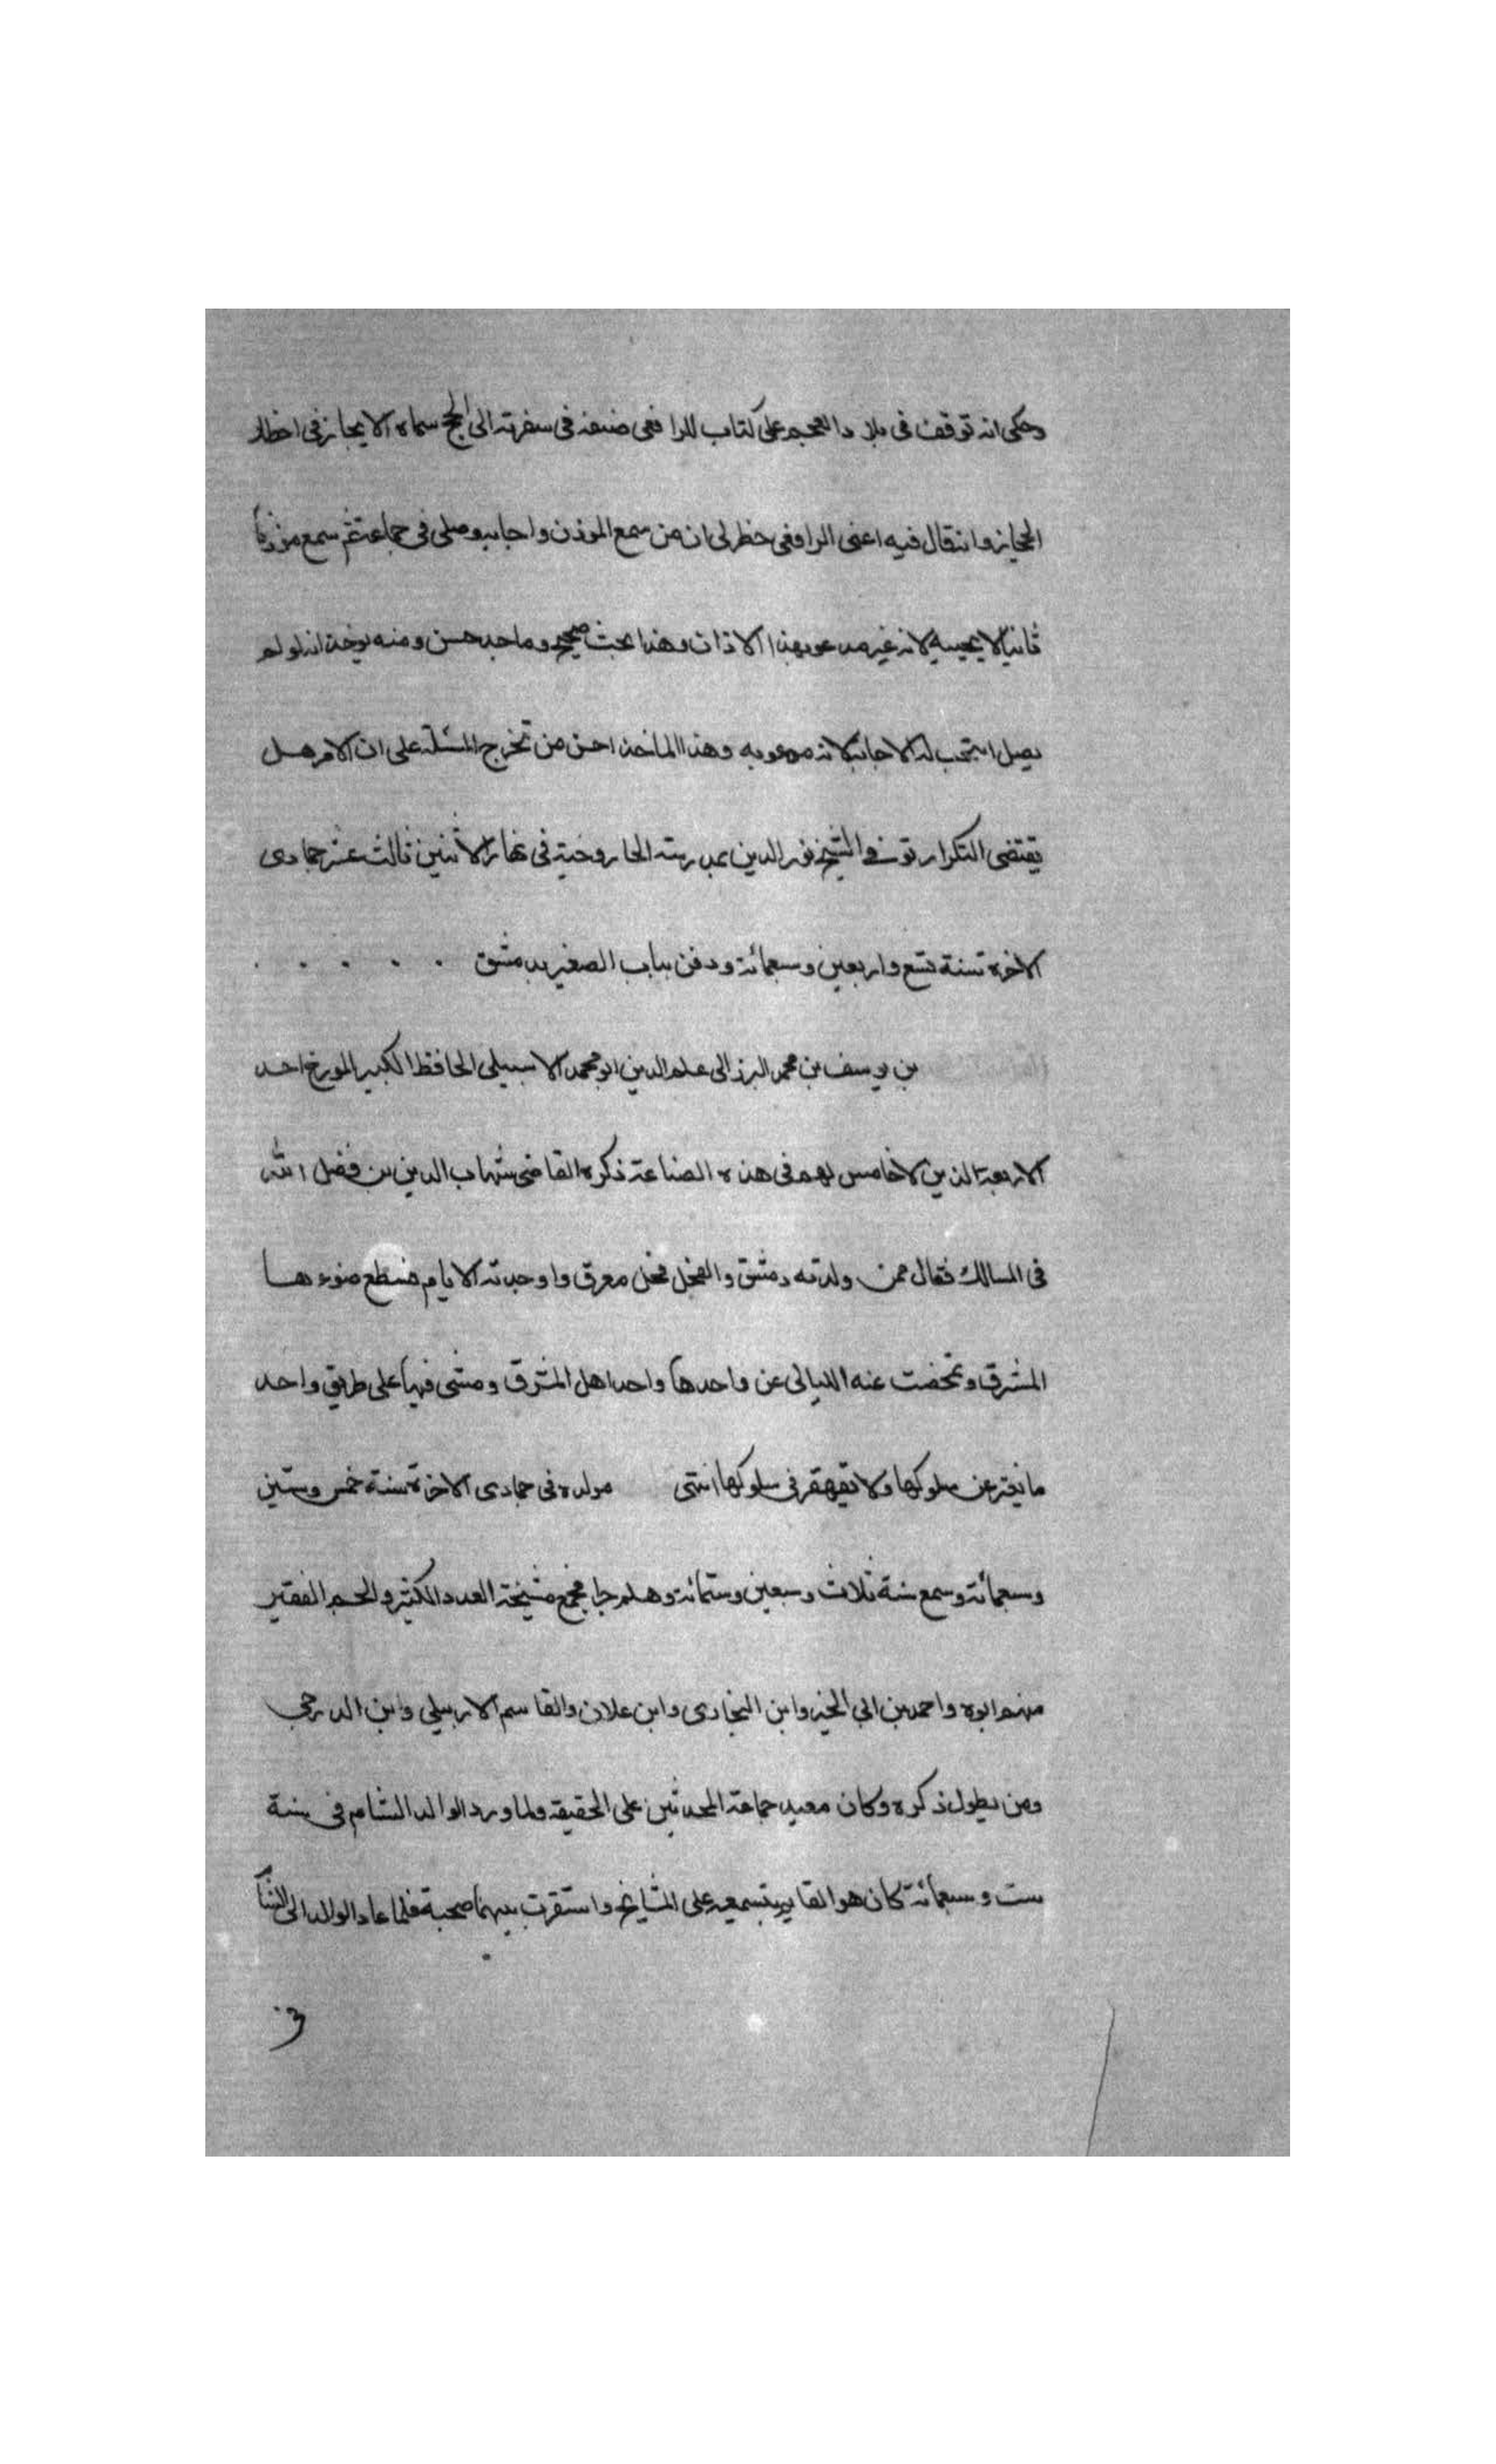 وحكى انه توقف فى بلاد العجم على كتاب للرافعى صنفه فى سفرته الى الحج سماه الايجاز فى اخطار
الحجاز وانه قال فيه اعنى الرافعى خطر لى ان من سمع الموذن واجابه وصلى فى جماعة ثم سمع موذنا
ثانيا لا يجيبه لانه غير مدعو بهذا الاذان وهذا بحث صحيح وماخذ حسن ومنه يوخذ انه لو لم
يصل استحب له الاجابة لانه مدعو به وهذا الماخذ احسن من تخرج المسئلة على ان الامر هل
يقتضى التكرار توفى الشيخ نور الدين بمدرسته الجاروخية فى نهار الاثنين ثالث عشر جمادى
الاخرة سنة تسع واربعين وسبعمائة ودفن بباب الصغير بدمشق
بن يوسف بن محمد البرزالى علم الدين ابو محمد الاشبيلى الحافظ الكبير المورخ احد
الاربعة الذين لا خامس لهم فى هذه الصناعة ذكره القاضى شهاب الدين بن فضل الله
فى المسالك فقال ممن ولدته دمشق والفحل فحل معرق واوجدته الايام فسطع ضوءها
المشرق وتمخضت عنه الليالى عن واحدها واحد اهل المشرق ومشى فيها على طريق واحد
ما نفترعن سلوكها ولا تقهقر فى سلوكها انتهى مولده فى جمادى الاخرة سنة خمس وستين
وسبعمائة وسمع سنة ثلاث وسبعين وستمائة وهلم جرا فجمع مشيخة العدد الكثير والجم الفقير
منهم ابوه واحمد بن ابى الخير وابن البخارى وابن علان والقاسم الاربيلى وابن الدرجى
ومن يطول ذكره وكان معيد جماعة المحدثين على الحقيقة ولما ورد الوالد الشام فى سنة
ست وسبعمائة كان هو القايم بتسميعه على المشايخ واستقرت بينهما صحبة فلما عاد الوالد الى الشا